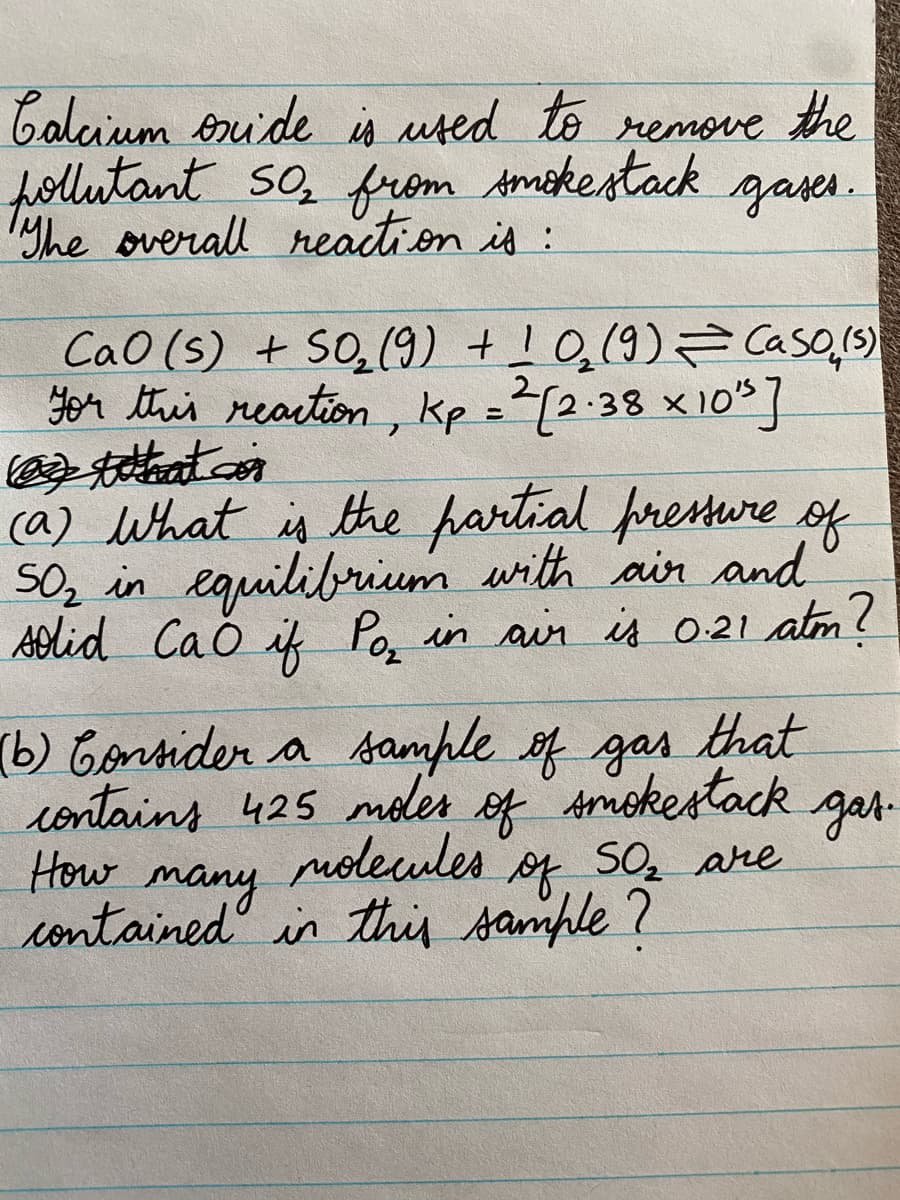 Calcium oxide is used to remove the
pollutant SO₂ from smokestack gases.
The overall reaction is :
CaO (s) + SO₂ (g) + 1/2 O₂ (g) ⇌ CaSO₄ (s)
For this reaction, Kp = [2.38 × 10¹⁵]
(a) What is the partial pressure of
SO₂ in equilibrium with air and
solid CaO if P_O₂ in air is 0.21 atm?
(b) Consider a sample of gas that
contains 425 moles of smokestack gas.
How many molecules of SO₂ are
contained in this sample ?